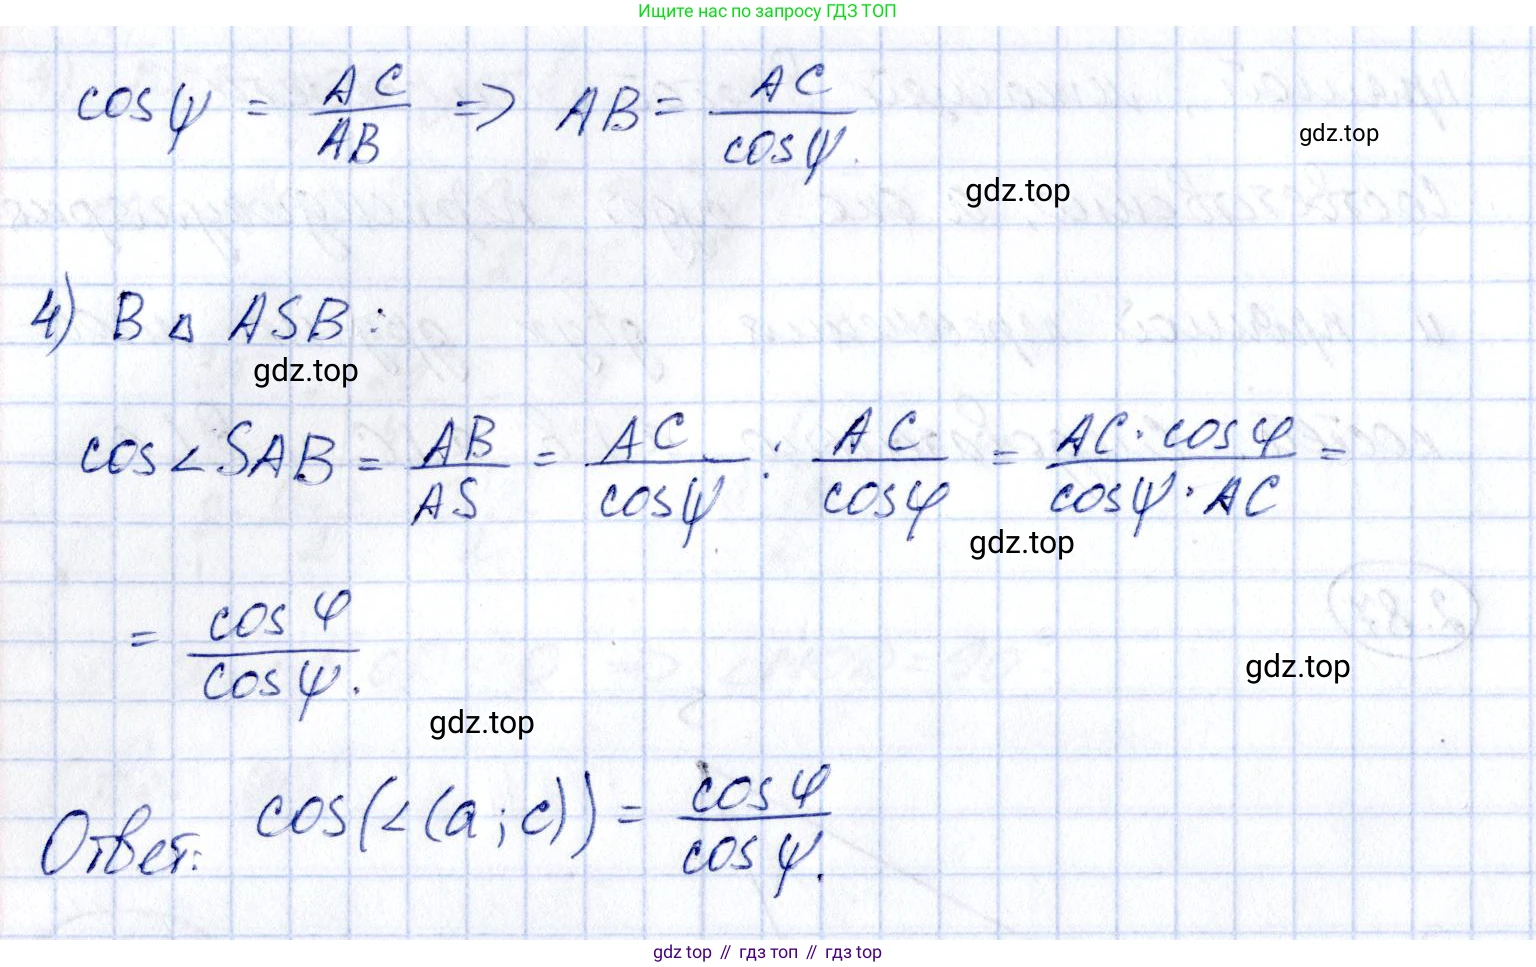 Ищите нас по запросу ГДЗ ТОП
cos ψ = AC/AB => AB = AC/cos ψ.
gdz.top
gdz.top
4) В △ ASB:
gdz.top
cos ∠SAB = AB/AS = AC/cos ψ : AC/cos φ = AC · cos φ/cos ψ · AC =
gdz.top
= cos φ/cos ψ.
gdz.top
gdz.top
Ответ: cos(∠(a; c)) = cos φ/cos ψ.
gdz top // гдз топ // гдз top